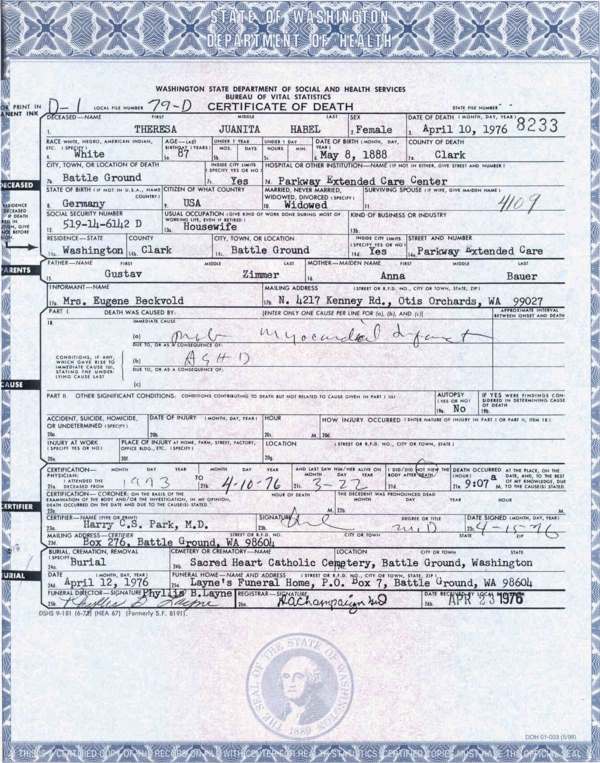 STATE OF WASHINGTON
DEPARTMENT OF HEALTH
WASHINGTON STATE DEPARTMENT OF SOCIAL AND HEALTH SERVICES
BUREAU OF VITAL STATISTICS
D-1 LOCAL FILE NUMBER 79-D CERTIFICATE OF DEATH STATE FILE NUMBER
DECEASED—NAME FIRST MIDDLE LAST SEX DATE OF DEATH (MONTH, DAY, YEAR)
1. THERESA JUANITA HABEL 2. Female 3. April 10, 1976 8233
RACE WHITE, NEGRO, AMERICAN INDIAN, ETC. (SPECIFY) AGE—LAST BIRTHDAY (YEARS) UNDER 1 YEAR UNDER 1 DAY DATE OF BIRTH (MONTH, DAY, YEAR) COUNTY OF DEATH
MOS. DAYS HOURS MIN.
White 87 May 8, 1888 Clark
CITY, TOWN, OR LOCATION OF DEATH INSIDE CITY LIMITS (SPECIFY YES OR NO) HOSPITAL OR OTHER INSTITUTION—NAME (IF NOT IN EITHER, GIVE STREET AND NUMBER)
Battle Ground Yes Parkway Extended Care Center
DECEASED
STATE OF BIRTH (IF NOT IN U.S.A., NAME COUNTRY) CITIZEN OF WHAT COUNTRY MARRIED, NEVER MARRIED, WIDOWED, DIVORCED (SPECIFY) SURVIVING SPOUSE (IF WIFE, GIVE MAIDEN NAME)
Germany USA Widowed 4109
SOCIAL SECURITY NUMBER USUAL OCCUPATION (GIVE KIND OF WORK DONE DURING MOST OF WORKING LIFE, EVEN IF RETIRED) KIND OF BUSINESS OR INDUSTRY
519-14-6142 D Housewife
RESIDENCE—STATE COUNTY CITY, TOWN, OR LOCATION INSIDE CITY LIMITS (SPECIFY YES OR NO) STREET AND NUMBER
Washington Clark Battle Ground Yes Parkway Extended Care
PARENTS
FATHER—NAME FIRST MIDDLE LAST MOTHER—MAIDEN NAME FIRST MIDDLE LAST
15. Gustav Zimmer 16. Anna Bauer
INFORMANT—NAME MAILING ADDRESS (STREET OR R.F.D. NO., CITY OR TOWN, STATE, ZIP)
17a. Mrs. Eugene Beckvold 17b. N. 4217 Kenney Rd., Otis Orchards, WA 99027
PART I. DEATH WAS CAUSED BY: [ENTER ONLY ONE CAUSE PER LINE FOR (a), (b), AND (c)] APPROXIMATE INTERVAL BETWEEN ONSET AND DEATH
18. IMMEDIATE CAUSE
(a) myocardial infarct
DUE TO, OR AS A CONSEQUENCE OF:
CONDITIONS, IF ANY, WHICH GAVE RISE TO IMMEDIATE CAUSE (a), STATING THE UNDERLYING CAUSE LAST
(b) ASHD
DUE TO, OR AS A CONSEQUENCE OF:
CAUSE
(c)
PART II. OTHER SIGNIFICANT CONDITIONS: CONDITIONS CONTRIBUTING TO DEATH BUT NOT RELATED TO CAUSE GIVEN IN PART I (a) AUTOPSY (YES OR NO) IF YES WERE FINDINGS CONSIDERED IN DETERMINING CAUSE OF DEATH
19a. No 19b.
ACCIDENT, SUICIDE, HOMICIDE, OR UNDETERMINED (SPECIFY) DATE OF INJURY (MONTH, DAY, YEAR) HOUR HOW INJURY OCCURRED (ENTER NATURE OF INJURY IN PART I OR PART II, ITEM 18)
20a. 20b. 20c. M. 20d.
INJURY AT WORK (SPECIFY YES OR NO) PLACE OF INJURY AT HOME, FARM, STREET, FACTORY, OFFICE BLDG., ETC. (SPECIFY) LOCATION (STREET OR R.F.D. NO., CITY OR TOWN, STATE)
20e. 20f. 20g.
CERTIFICATION— PHYSICIAN: I ATTENDED THE DECEASED FROM MONTH DAY YEAR TO MONTH DAY YEAR AND LAST SAW HIM/HER ALIVE ON MONTH DAY YEAR I DID/DID NOT VIEW THE BODY AFTER DEATH. DEATH OCCURRED AT THE PLACE, ON THE DATE, AND, TO THE BEST OF MY KNOWLEDGE, DUE TO THE CAUSE(S) STATED.
1973 4-10-76 3-22 9:07 a M.
CERTIFICATION—CORONER: ON THE BASIS OF THE EXAMINATION OF THE BODY AND/OR THE INVESTIGATION, IN MY OPINION, DEATH OCCURRED ON THE DATE AND DUE TO THE CAUSE(S) STATED. HOUR OF DEATH THE DECEDENT WAS PRONOUNCED DEAD
MONTH DAY YEAR HOUR
CERTIFIER
CERTIFIER—NAME (TYPE OR PRINT) SIGNATURE DEGREE OR TITLE DATE SIGNED (MONTH, DAY, YEAR)
Harry C.S. Park, M.D. MD 4-15-76
MAILING ADDRESS—CERTIFIER STREET OR R.F.D. NO. CITY OR TOWN STATE ZIP
Box 276, Battle Ground, WA 98604
BURIAL, CREMATION, REMOVAL (SPECIFY) CEMETERY OR CREMATORY—NAME LOCATION CITY OR TOWN STATE
Burial Sacred Heart Catholic Cemetery, Battle Ground, Washington
BURIAL
DATE (MONTH, DAY, YEAR) FUNERAL HOME—NAME AND ADDRESS (STREET OR R.F.D. NO., CITY OR TOWN, STATE, ZIP)
April 12, 1976 Layne's Funeral Home, P.O. Box 7, Battle Ground, WA 98604
FUNERAL DIRECTOR—SIGNATURE Phyllis B. Layne REGISTRAR—SIGNATURE DATE RECEIVED BY LOCAL
Phyllis B Layne APR 23 1976
DSHS 9-181 (6-73) (HEA 67) (Formerly S.F. 8191).
THE SEAL OF THE STATE OF WASHINGTON
1889
DOH 01-003 (5/99)
THIS IS A CERTIFIED COPY OF THE RECORD ON FILE WITH CENTER FOR HEALTH STATISTICS. CERTIFIED COPY MUST HAVE THE OFFICIAL SEAL